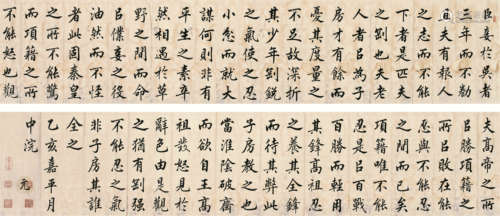 臣妾於吳者
三年而不勌
且夫有報人
之志而不能
下者是匹夫
之剛也夫老
人者㠯為子
房才有餘而
憂其度量之
不足故深折
其少年剛銳
之氣使之忍
小忿而就大
謀何則非有
平生之素卒
然相遇於草
野之間而命
㠯僕妾之役
油然而不怪
者此固秦皇
之所不能驚
而項籍之所
不能怒也觀
夫高帝之所
㠯勝項籍之
所㠯敗者在
能忍與不能忍
之間而已矣
項籍唯不能
忍是㠯百戰
百勝而輕用
其鋒高祖忍
之養其全鋒
而待其斃此
子房教之也
當淮陰破齊
而欲自王高
祖發怒見於
辭色由是觀
之猶有剛強
不能忍之氣
非子房其誰
全之
乙亥嘉平月
中浣